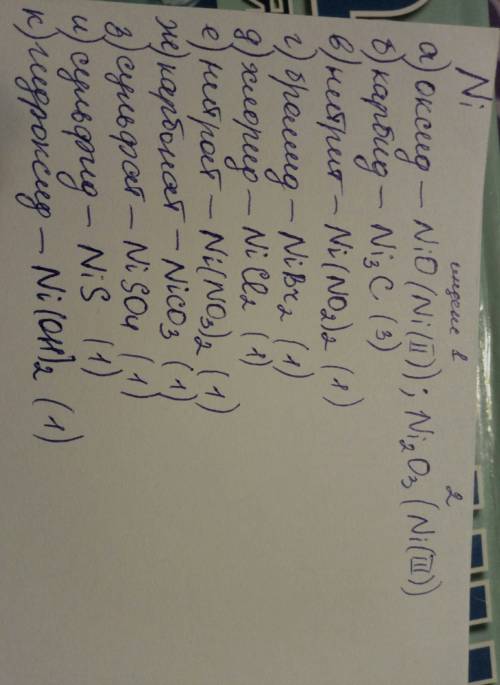 Ni
индекс 1 2
а) оксид – NiO (Ni(II)); Ni2O3 (Ni(III))
б) карбид – Ni3C (3)
в) нитрит – Ni(NO2)2 (1)
г) бромид – NiBr2 (1)
д) хлорид – NiCl2 (1)
е) нитрат – Ni(NO3)2 (1)
ж) карбонат – NiCO3 (1)
з) сульфат – NiSO4 (1)
и) сульфид – NiS (1)
к) гидроксид – Ni(OH)2 (1)